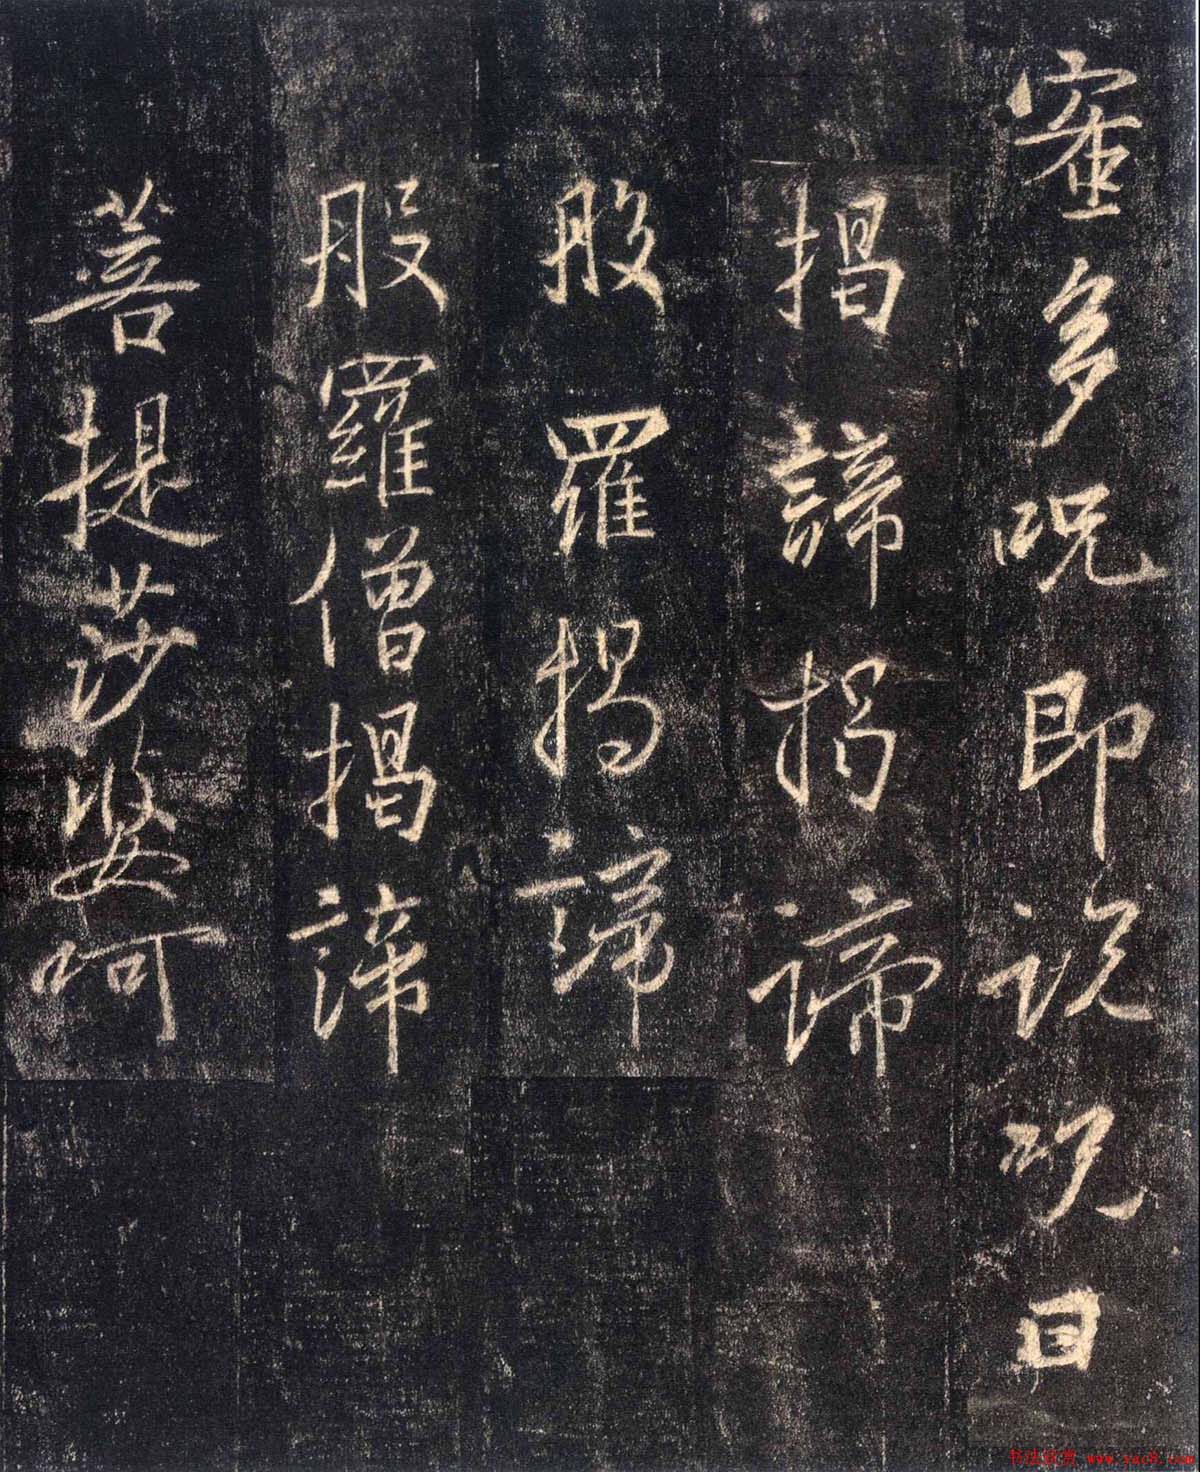 蜜多呪即說呪曰
揭諦揭諦
般羅揭諦
般羅僧揭諦
菩提莎婆呵
书法欣赏 www.yac8.com